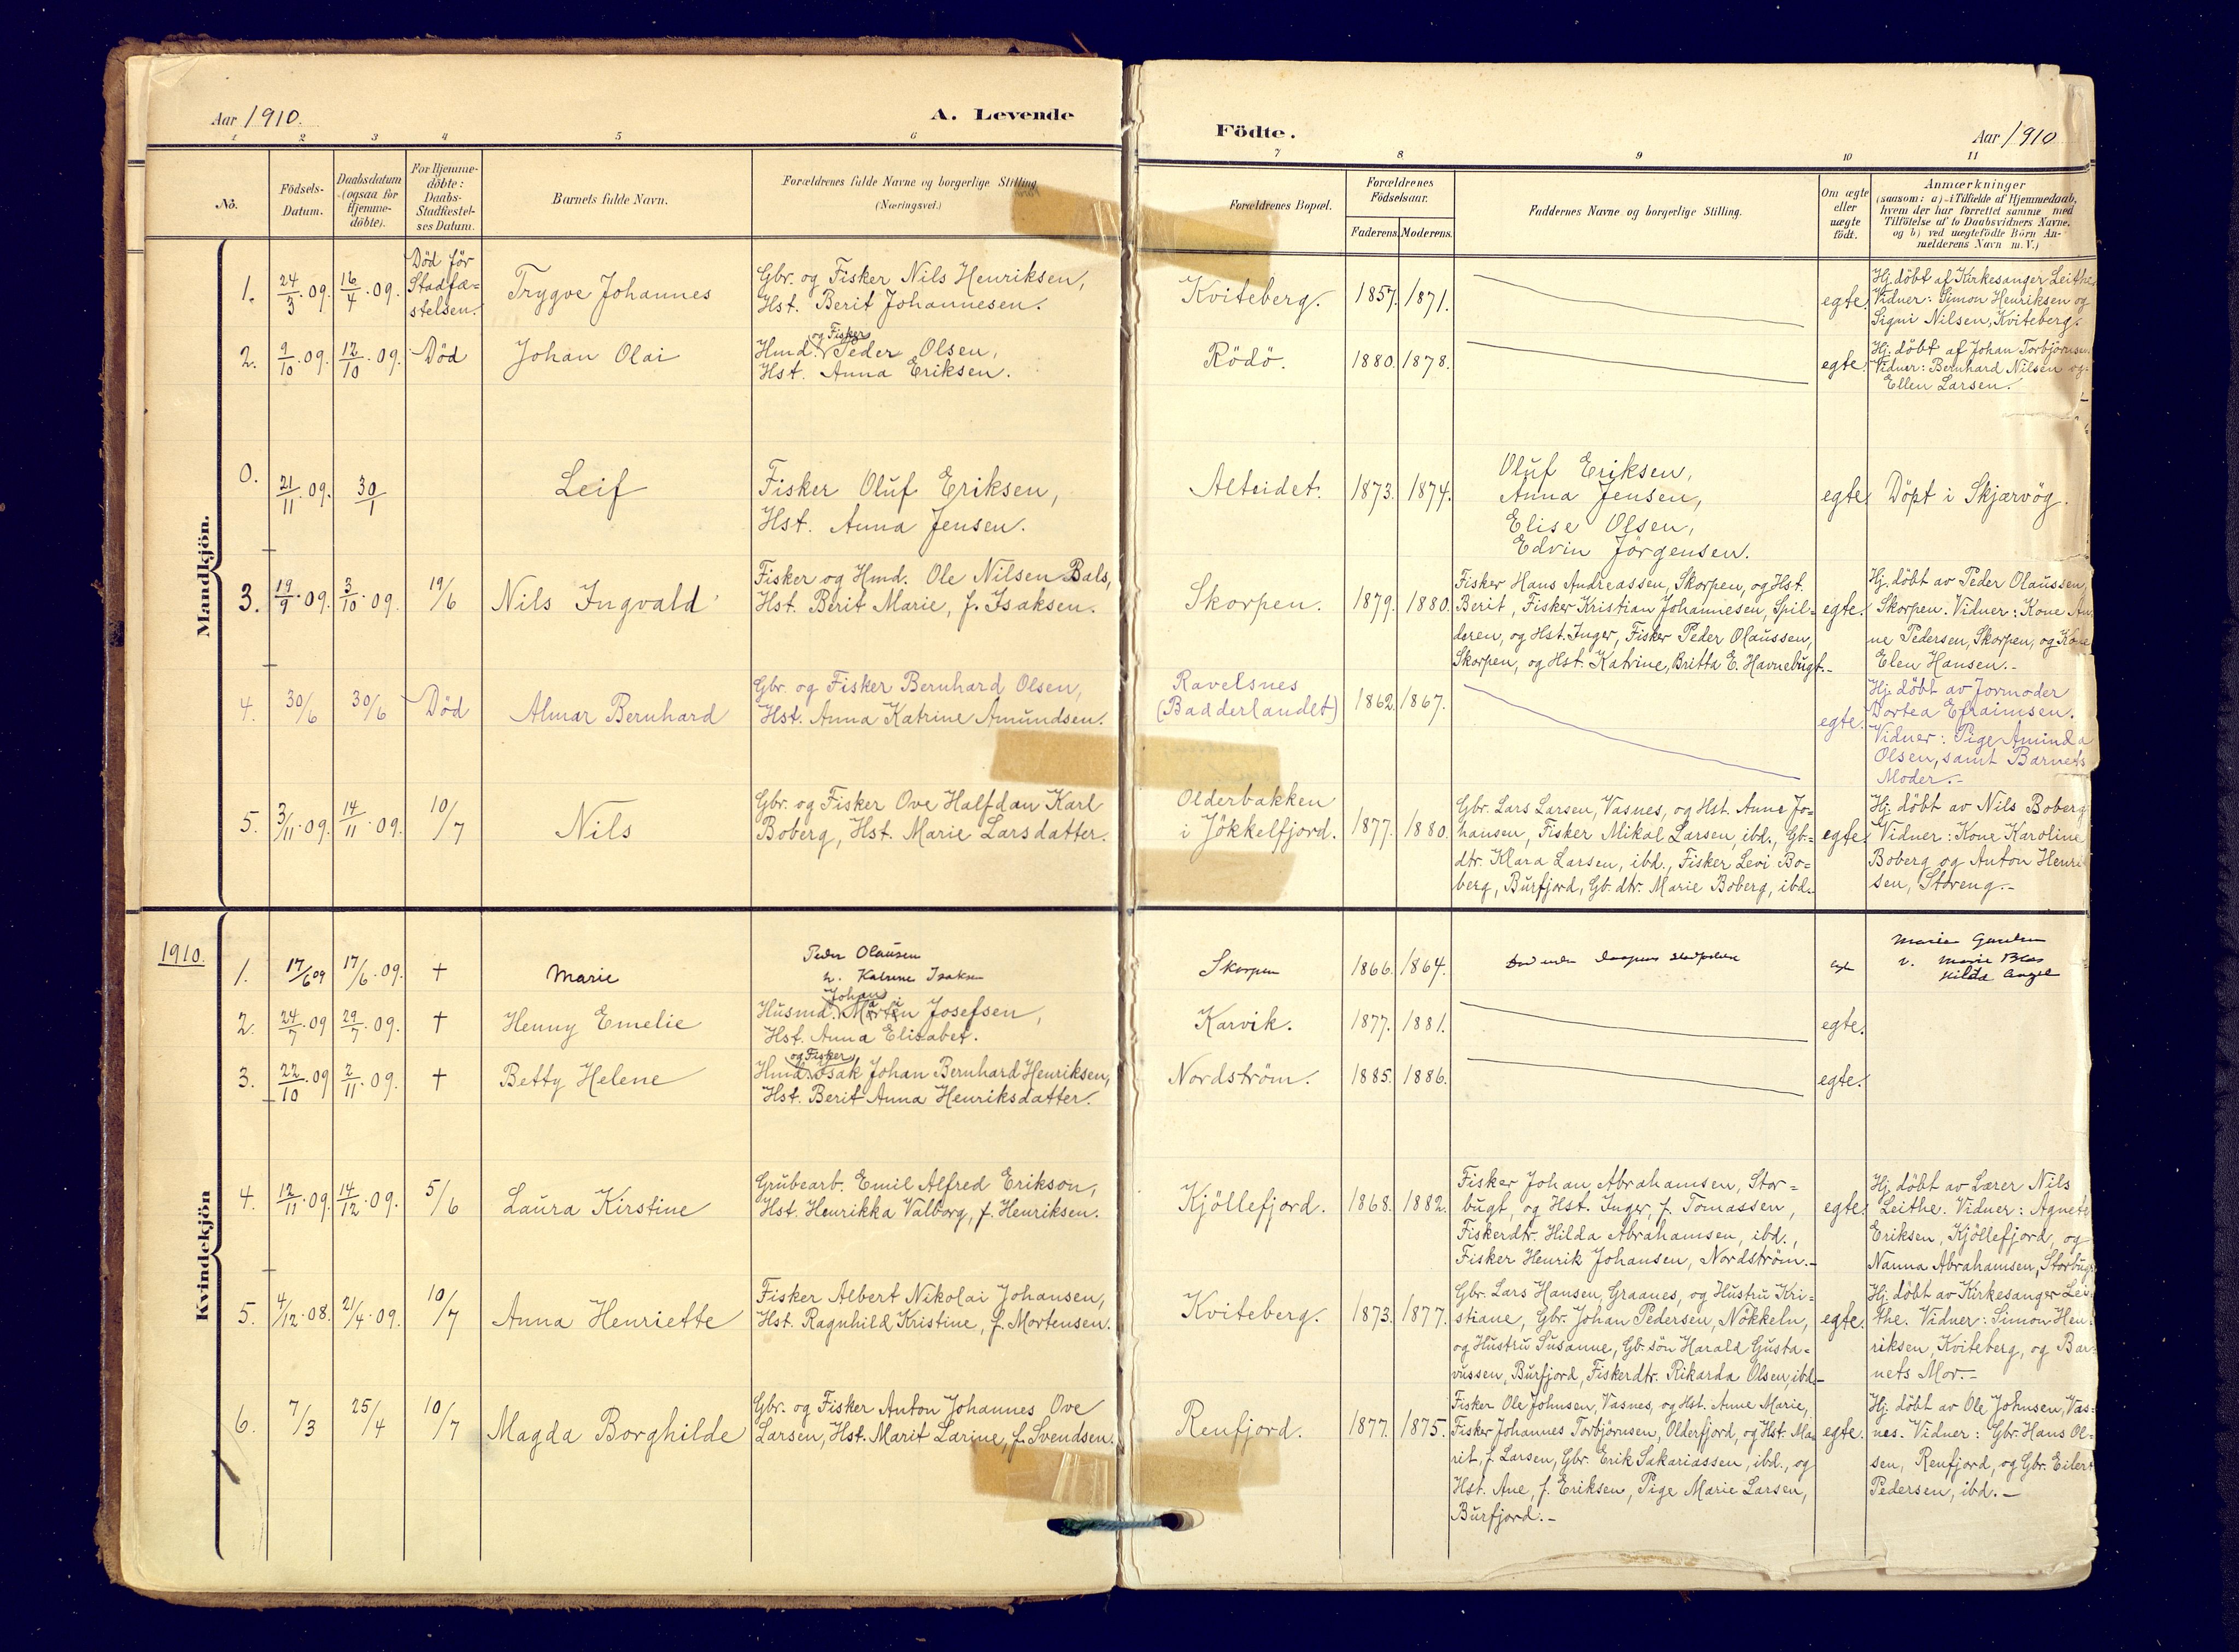 Aar 1910.
A. Levende
Födte.
Aar 1910
1 2 3 4 5 6 7 8 9 10 11
No.
Födsels-
Datum.
Daabsdatum
(ogsaa for
Hjemme-
döbte).
For Hjemme-
döbte:
Daabs-
Stadfæstel-
ses Datum.
Barnets fulde Navn.
Forældrenes fulde Navne og borgerlige Stilling
(Næringsvei.)
Forældrenes Bopæl.
Forældrenes
Födselsaar.
Faderens. Moderens.
Faddernes Navne og borgerlige Stilling.
Om ægte
eller
uægte
födt.
Anmærkninger
(saasom: a) i Tilfælde af Hjemmedaab,
hvem der har forrettet samme med
Tilföielse af to Daabsvidners Navne.
og b) ved uægtefödte Börn An-
melderens Navn m. V.)
Mandkjön.
1.
24/3.09.
16/4.09.
Död för
Stadfæ-
stelsen.
Trygve Johannes
Gbr. og Fisker Nils Henriksen,
Hst. Berit Johannesen.
Kviteberg.
1857. 1871.
egte.
Hj. döbt af Kirkesanger Leithe
Vidner: Simon Henriksen og
Signi Nilsen, Kviteberg.
2.
9/10.09.
12/10.09.
Död
Johan Olai
og Fisker
Hmd. Peder Olsen,
Hst. Anna Eriksen.
Rödö.
1880. 1878.
egte.
Hj. döbt af Johan Torbjörnsen.
Vidner: Bernhard Nilsen og
Ellen Larsen.
0.
21/11.09.
30/1
Leif
Fisker Oluf Eriksen,
Hst. Anna Jensen.
Alteidet.
1873. 1874.
Oluf Eriksen,
Anna Jensen,
Elise Olsen,
Edvin Jörgensen.
egte.
Döpt i Skjærvög.
3.
19/9.09.
3/10.09.
19/6
Nils Ingvald
Fisker og Hmd. Ole Nilsen Bals,
Hst. Berit Marie, f. Isaksen.
Skorpen.
1879. 1880.
Fisker Hans Andreassen, Skorpen, og Hst.
Berit, Fisker Kristian Johannesen, Spil-
deren, og Hst. Inger, Fisker Peder Olaussen,
Skorpen, og Hst. Katrine, Britta E. Havnebugt.-
egte.
Hj. döbt av Peder Olaussen,
Skorpen. Vidner: Kone An-
ne Pedersen, Skorpen, og Kone
Elen Hansen.-
4.
30/6
30/6
Död
Almar Bernhard
Gbr. og Fisker Bernhard Olsen,
Hst. Anna Katrine Amundsen.
Ravelsnes
(Badderlandet)
1862. 1867.
egte.
Hj. döbt av Jormoder
Dortea Efraimsen.
Vidner: Pige Aminda
Olsen, samt Barnets
Moder.-
5.
3/11.09.
14/11.09.
10/7
Nils
Gbr. og Fisker Ove Halfdan Karl
Boberg, Hst. Marie Larsdatter.
Olderbakken
i Jökkelfjord.
1877. 1880.
Gbr. Lars Larsen, Vasnes, og Hst. Anne Jo-
hansen, Fisker Mikal Larsen, ibd., Gb.-
dtr. Klara Larsen, ibd., Fisker Levi Bo-
berg, Burfjord, Gb. dtr. Marie Boberg, ibd.-
egte.
Hj. döbt av Nils Boberg
Vidner: Kone Karoline
Boberg og Anton Henri
sen, Storeng.-
Kvindekjön
1910.
1.
17/6 09
17/6.09.
+
Marie
Peder Olausen
h. Katrine Isaksen
Skorpen
1866. 1864.
egte
v. Marie Bles
Hilda Angel
2.
24/7.09
29/7.09.
+
Henny Emelie
Johan
Husmd. Martin Josefsen,
Hst. Anna Elisabet.
Karvik.
1877. 1881.
egte.
3.
22/10.09
2/11.09.
+
Betty Helene
og Fisker
Hmd. Isak Johan Bernhard Henriksen,
Hst. Berit Anna Henriksdatter.
Nordström.
1885. 1886.
egte.
4.
12/11.09.
14/12.09.
5/6
Laura Kirstine
Grubearb. Emil Alfred Erikson,
Hst. Henrikka Valborg, f. Henriksen.
Kjöllefjord.
1868. 1882.
Fisker Johan Abrahamsen, Stor-
bugt, og Hst. Inger, f. Tomassen,
Fiskerdtr. Hilda Abrahamsen, ibd.,
Fisker Henrik Johansen, Nordström.-
egte.
Hj. döbt av Lærer Nils
Leithe. Vidner: Agnete
Eriksen, Kjöllefjord, og
Nanna Abrahamsen, Storbug
5.
4/12.08.
21/4.09.
10/7
Anna Henriette
Fisker Albert Nikolai Johansen,
Hst. Ragnhild Kristine, f. Mortensen.
Kviteberg.
1873. 1877.
Gbr. Lars Hansen, Graanes, og Hustru Kri-
stiane, Gbr. Johan Pedersen, Nökkeln,
og Hustru Susanne, Gb. sön Harald Gusta-
vussen, Burfjord, Fiskerdtr. Rikarda Olsen, ibd.-
egte.
Hj. döbt av Kirkesanger Lei-
the. Vidner: Simon Hen-
riksen, Kviteberg, og Bar-
nets Mor.-
6.
7/3
25/4
10/7
Magda Borghilde
Gbr. og Fisker Anton Johannes Ove
Larsen, Hst. Marit Larine, f. Svendsen.
Renfjord.
1877. 1875.
Fisker Ole Johnsen, Vasnes, og Hst. Anne Marie,
Fisker Johannes Torbjörnsen, Olderfjord, og Hst. Ma-
rit, f. Larsen, Gbr. Erik Sakariassen, ibd., og
Hst. Ane, f. Eriksen, Pige Marie Larsen,
Burfjord.-
egte.
Hj. döbt av Ole Johnsen, Vas-
nes. Vidner: Gbr. Hans Ol-
sen, Renfjord, og Gbr. Eilert
Pedersen, ibd.-